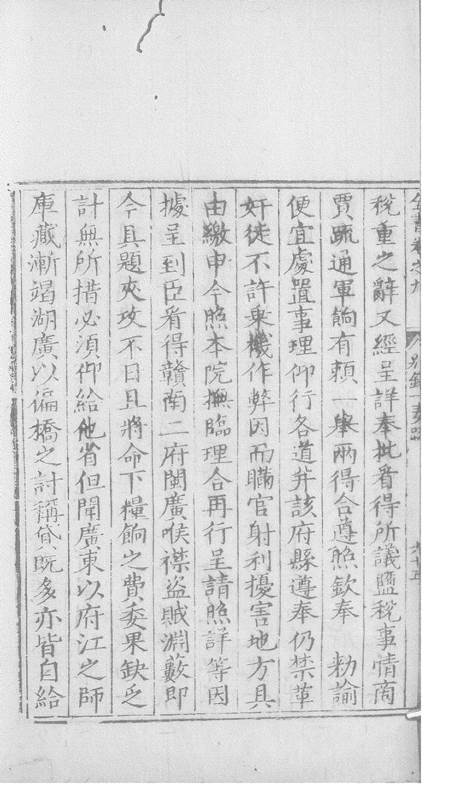 全書卷之九
別錄一 奏疏
九十五
稅重之辭又經呈詳奉批看得所議鹽稅事情商
賈疏通軍餉有賴一舉兩得合遵照欽奉　勑諭
便宜處置事理仰行各道并該府縣遵奉仍禁革
奸徒不許乗機作弊因而瞞官射利擾害地方具
由繳申今照本院撫臨理合再行呈請照詳等因
據呈到臣看得贛南二府閩廣喉襟盜賊淵藪即
今具題夾攻不日且將命下糧餉之費委果缺乏
計無所措必須仰給他省但聞廣東以府江之師
庫藏漸竭湖廣以偏橋之討稱貸旣多亦皆自給